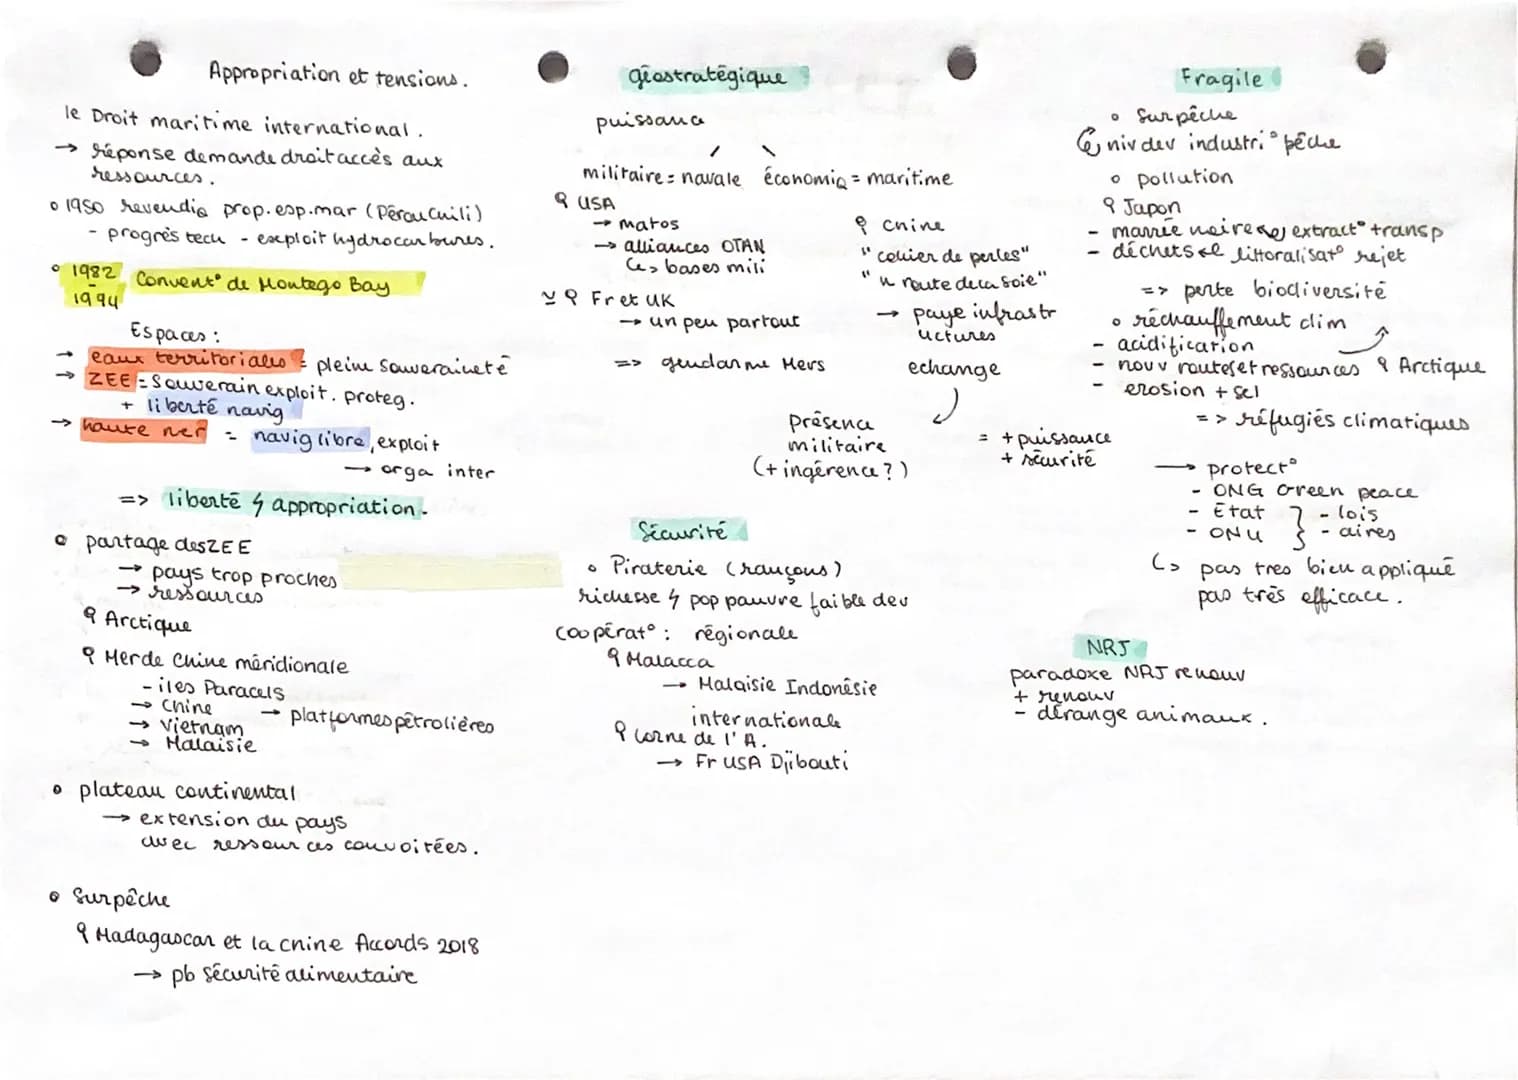 Appropriation et tensions.
le Droit maritime international.
→ réponse demande droit accès aux
ressources.
o 1950 revendiq prop. esp. mar (Pérou Chili)
- progrès tech - exploit hydrocarbures.
o 1982 - 1994 Convent° de Montego Bay
Espaces :
→ eaux territoriales = pleine souveraineté
→ ZEE = Souverain exploit. proteg.
+ liberté navig
→ haute mer = navig libre, exploit
→ orga inter
=> liberté ϟ appropriation.
o partage des ZEE
→ pays trop proches
→ ressources
⚲ Arctique
⚲ Mer de Chine méridionale
- iles Paracels
→ Chine → platformes pétrolières
→ Vietnam
→ Malaisie
o plateau continental
→ extension du pays
avec ressources convoitées.
o Surpêche
⚲ Madagascar et la chine Accords 2018
→ pb sécurité alimentaire
géostratégique
puissance
militaire = navale économiq = maritime
⚲ USA
→ matos
→ alliances OTAN
↳ bases mili
⚲ Fr et UK
→ un peu partout
=> gendarme Mers
⚲ chine
"collier de perles"
"n route de la soie"
→ paye infrastr
uctures
echange
présence
militaire
(+ ingérence ?)
= + puissance
+ sécurité
Sécurité
o Piraterie (rançons)
richesse ϟ pop pauvre faible dev
coopérat° : régionale
⚲ Malacca
→ Malaisie Indonésie
internationale
⚲ corne de l'A.
→ Fr USA Djibouti
Fragile
o Surpêche
↳ niv dev industri° pêche
o pollution
⚲ Japon
- marée noire extract° transp
- déchets littoralisat° rejet
=> perte biodiversité
o réchauffement clim
- acidification
- nouv routes et ressources ⚲ Arctique
- erosion + sel
=> réfugiés climatiques
→ protect°
- ONG Green peace
- Etat } - lois
- ONU } - aires
↳ pas tres bien appliqué
pas très efficace.
NRJ
paradoxe NRJ renouv
+ renouv
- dérange animaux.